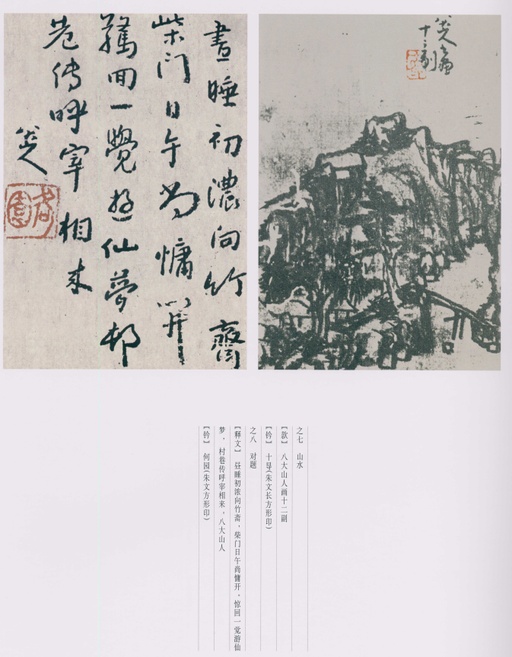 八大山人画
十二副
晝睡初濃向竹齋
柴门日午尚慵开
驚回一覺遊仙夢邨
巷傳呼宰相来
八大山人
何園
之七 山水
【款】 八大山人画十二副
【钤】 十显(朱文长方形印)
之八 对题
【释文】 昼睡初浓向竹斋，柴门日午尚慵开，惊回一觉游仙
梦，村巷传呼宰相来，八大山人
【钤】 何园(朱文方形印)